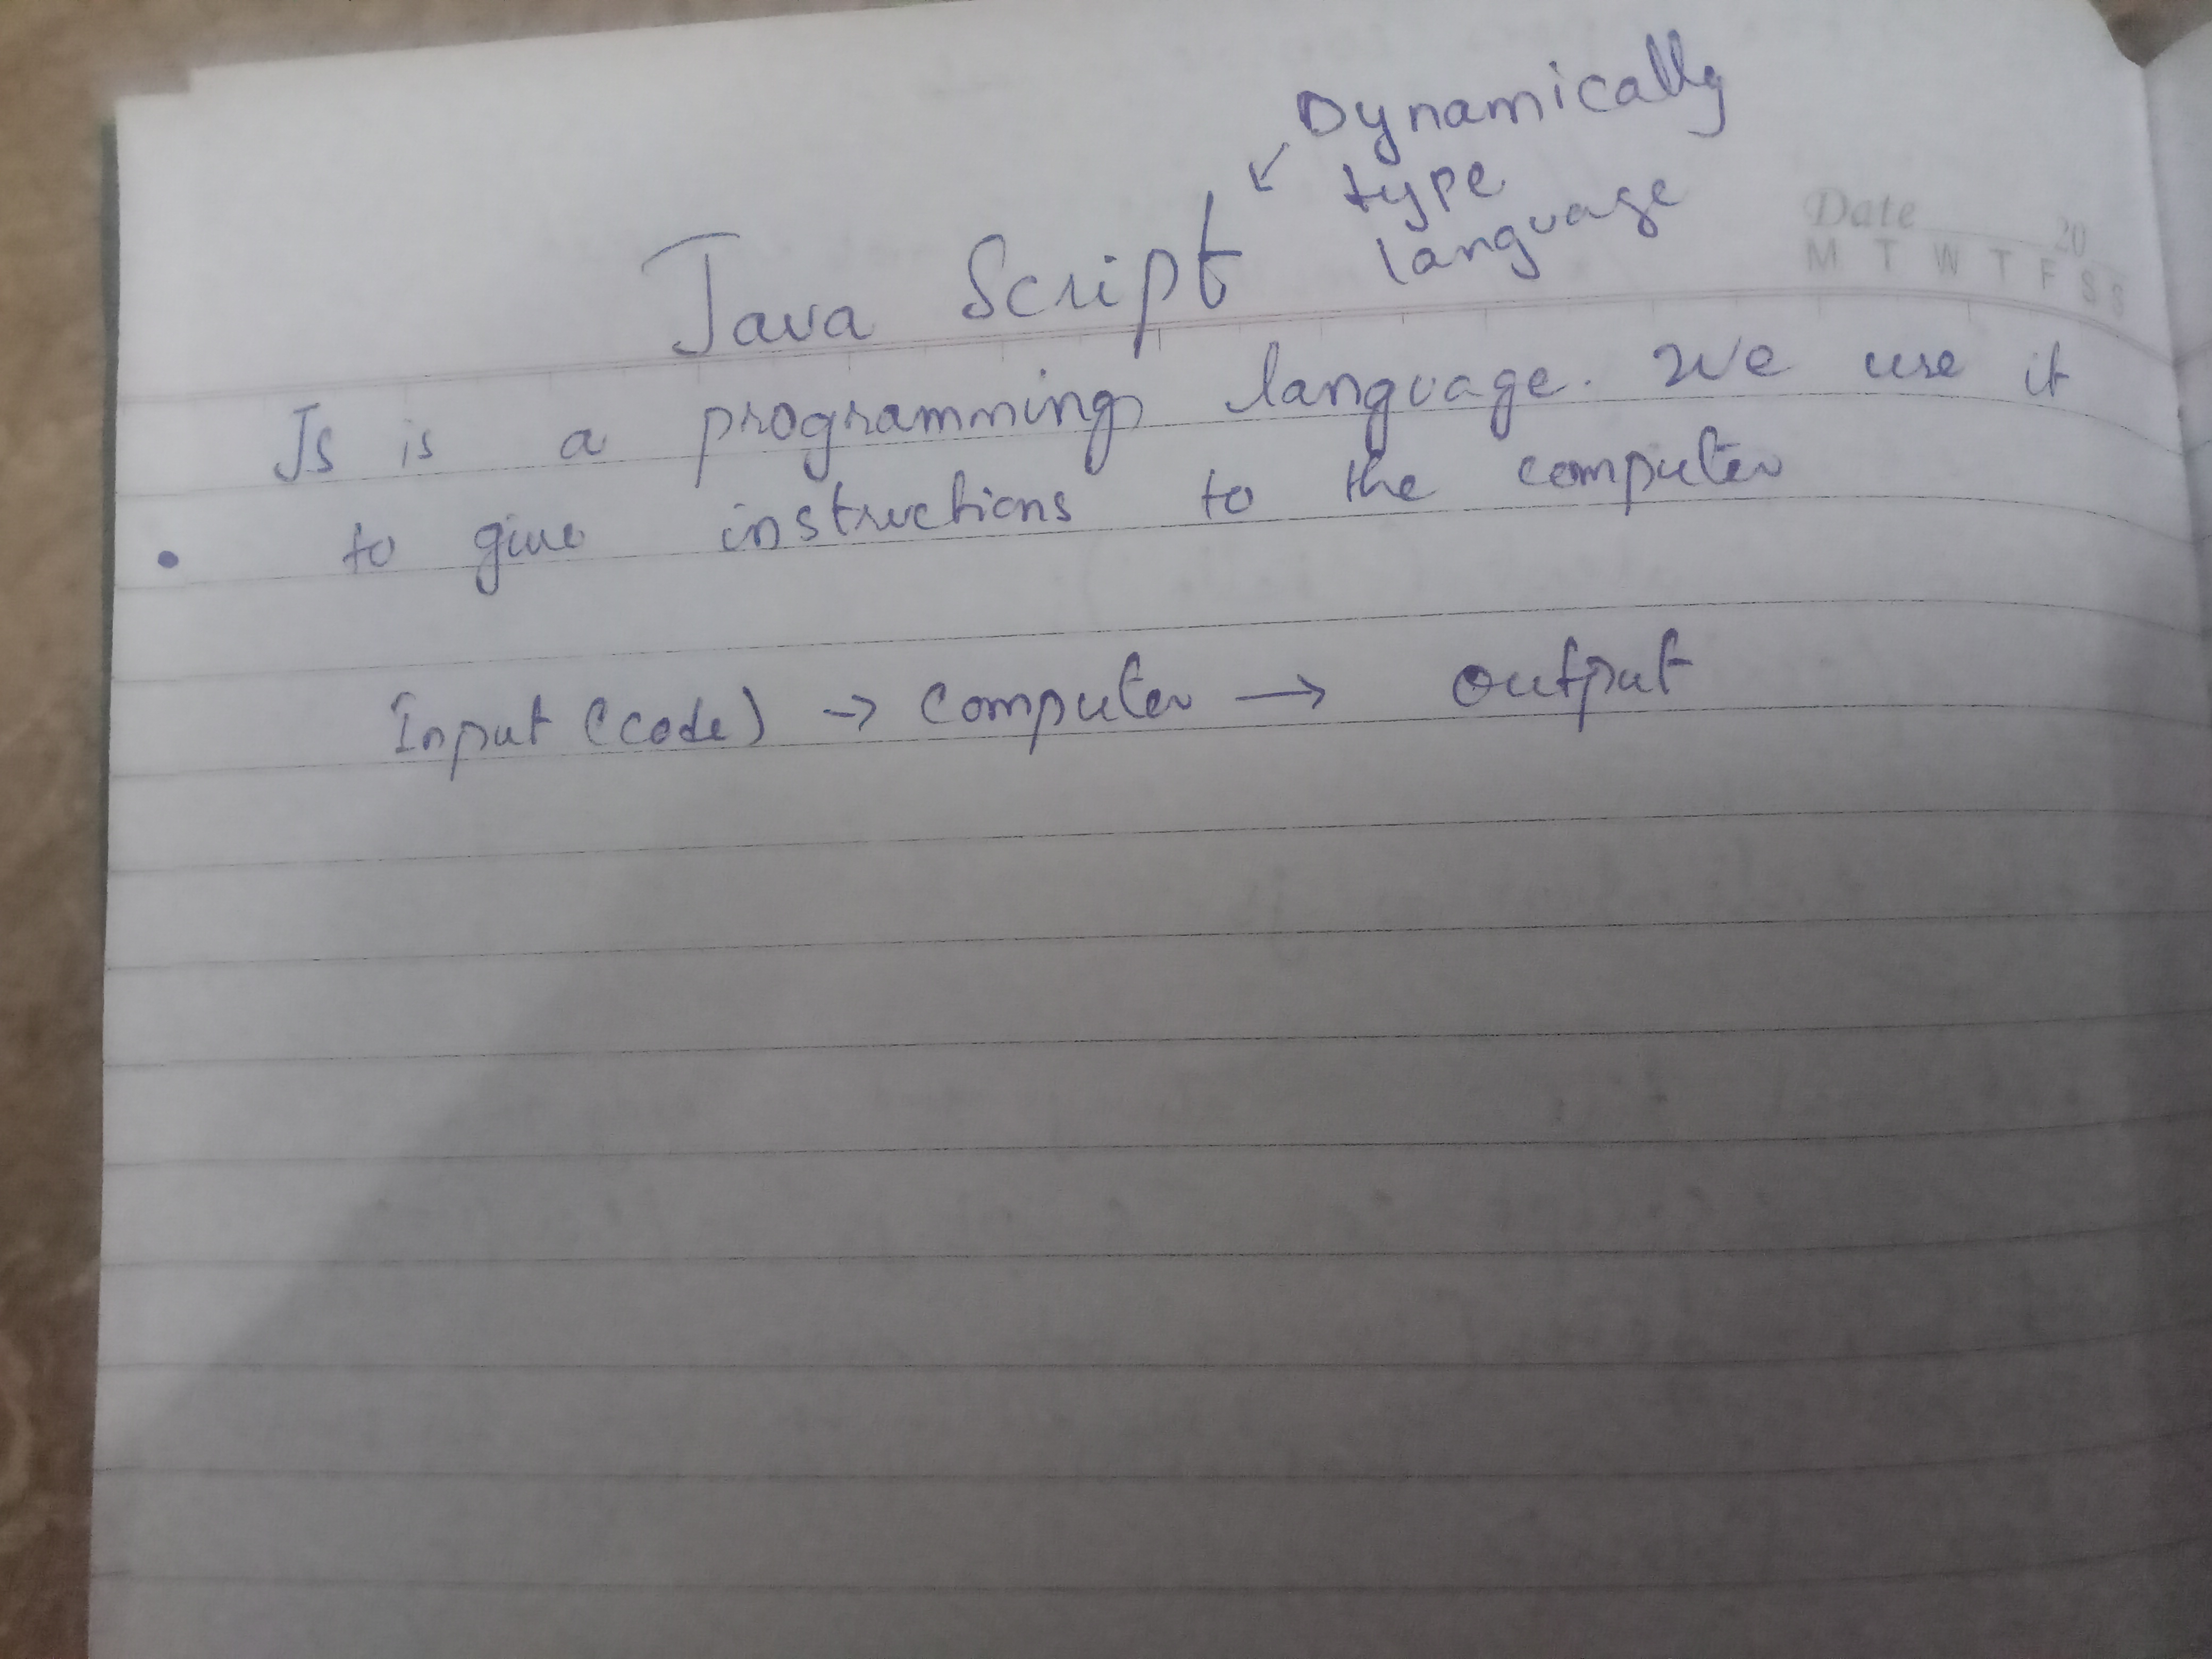 Dynamically
type
language
Java Script
Date 20
M T W T F S S
Js is a programming language. We use it
to give instructions to the computer
Input (code) → computer → output